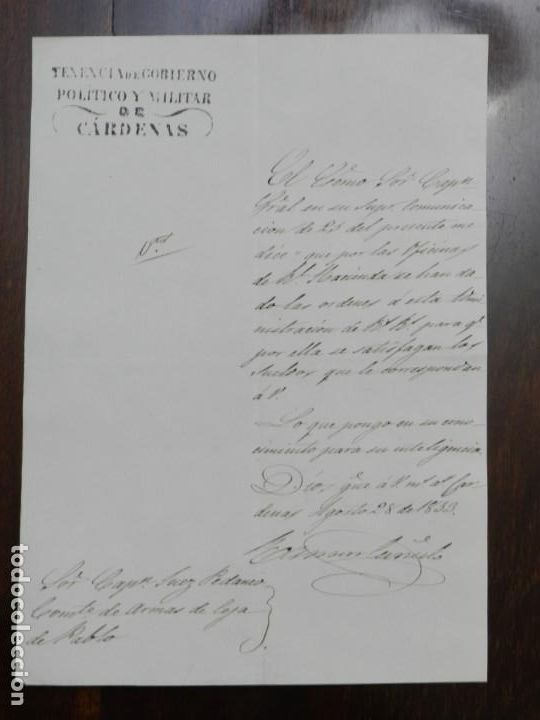 TENENCIA DE GOBIERNO
POLITICO Y MILITAR
DE
CÁRDENAS
El Exmo Sor. Capn.
Gral en su Supr. comunica
cion de 25 del presente me
dice "que por las Oficinas
de Rl. Hacienda se han da
do las ordenes á esta Admi
nistración de Rs. Rs. para qe.
por ella se satisfagan los
sueldos que le correspondan
á V.
Lo que pongo en su cono-
cimiento para su inteligencia.
Dios gue. á V. ms. as. Car-
denas Agosto 28 de 1853.
Sor. Capn. Juez Pedaneo
Comte. de Armas de Ceja
de Pablo
todocoleccion